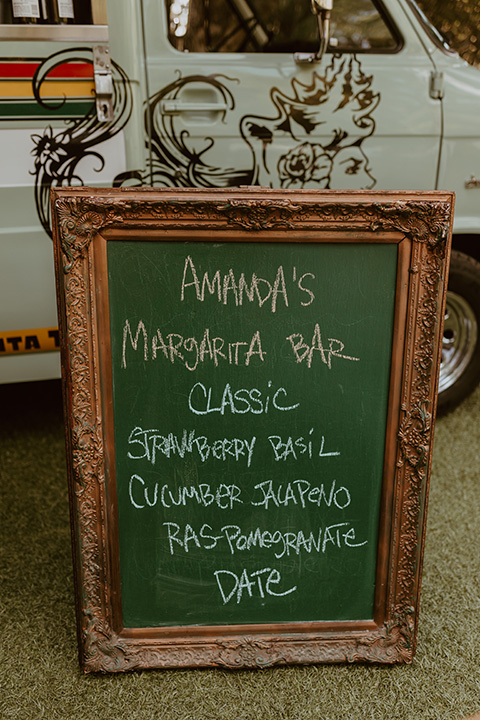 AMANDA'S
MARGARITA BAR
CLASSIC
STRAWBERRY BASIL
CUCUMBER JALAPENO
RAS-POMEGRANATE
DATE